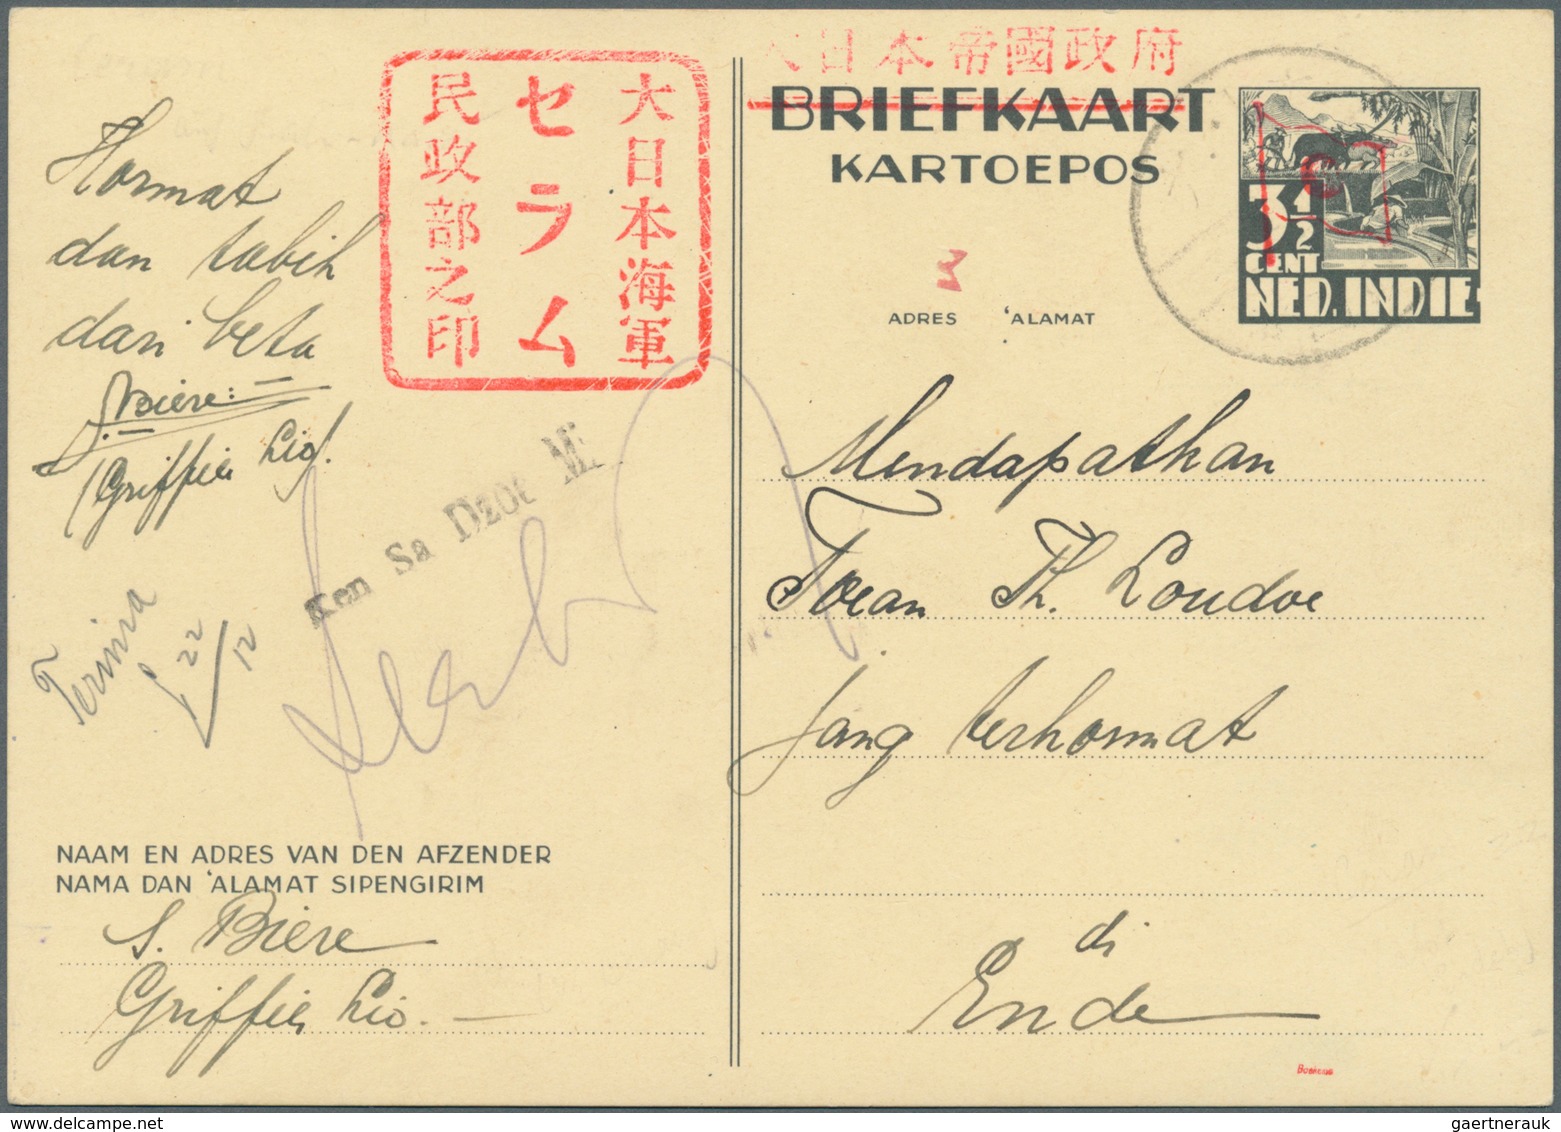 大日本帝國政府
BRIEFKAART
KARTOEPOS
3½
CENT
NED. INDIE
3
ADRES 'ALAMAT
大日本海軍
セラム
民政部之印
Hormat
dan tabih
dari beta
S. Biere:
(Griffier Lio).
Ken Sa Dzoe Mi
Terima
22/12
Mendapatkan
Toean Th. Loudoe
jang terhormat
di
Ende
NAAM EN ADRES VAN DEN AFZENDER
NAMA DAN 'ALAMAT SIPENGIRIM
S. Biere
Griffier Lio.
gaertnerauk@delcampe.net